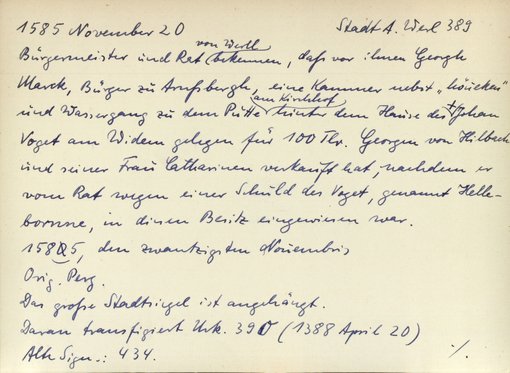 1585 November 20 Stadt A. Werl 389
von Werll
Bürgermeister und Rat bekennen, dass vor ihnen Georgh
Marck, Bürger zu Arnßbergh, eine Kammer nebst "höueken"
am Kirchhof
und Wassergang zu dem Pütte hinter dem Hause des † Johan
Voget am Widem gelegen für 100 Tlr. Georgen von Hilbach
und seiner Frau Catharinen verkauft hat, nachdem er
vom Rat wegen einer Schuld des Voget, genannt Helle-
bornne, in diesen Besitz eingewiesen war.
1585, den zwantzigsten Nouembris
Orig. Perg.
Das große Stadtsiegel ist angehängt.
Daran transfigiert Urk. 390 (1388 April 20)
Alte Sign.: 434. ./.